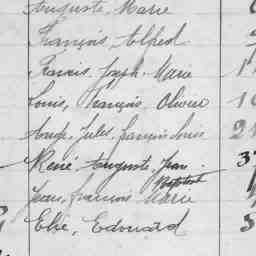 Auguste, Marie
François, Alfred
Francis, Joseph, Marie 1
Louis, François, Olivier 19
Ange, Jules, François Louis 21
René Auguste, Jean 37
Baptiste
Jean, François Marie
Elie, Edouard